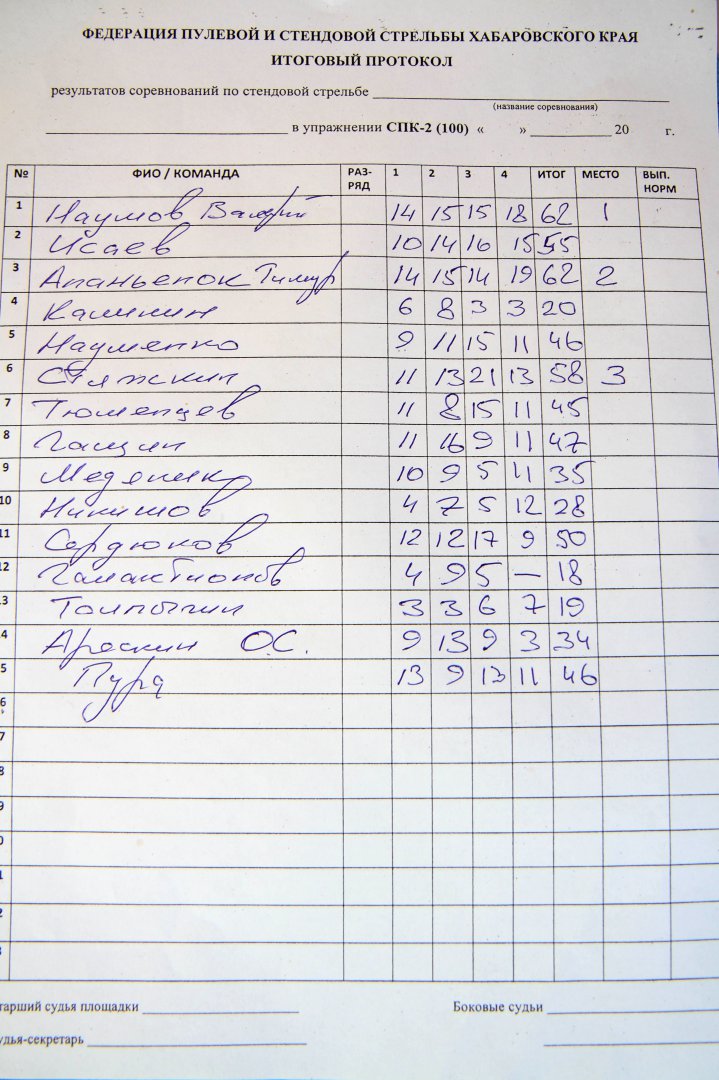 ФЕДЕРАЦИЯ ПУЛЕВОЙ И СТЕНДОВОЙ СТРЕЛЬБЫ ХАБАРОВСКОГО КРАЯ
ИТОГОВЫЙ ПРОТОКОЛ
результатов соревнований по стендовой стрельбе
(название соревнования)
в упражнении СПК-2 (100) « » 20 г.
№ ФИО / КОМАНДА РАЗ-РЯД 1 2 3 4 ИТОГ МЕСТО ВЫП. НОРМ
1 Наумов Валерий 14 15 15 18 62 1
2 Исаев 10 14 16 15 55
3 Ананьенок Тимур 14 15 14 19 62 2
4 Калинин 6 8 3 3 20
5 Науменко 9 11 15 11 46
6 Стяжкин 11 13 21 13 58 3
7 Тюменцев 11 8 15 11 45
8 Гащин 11 16 9 11 47
9 10 9 5 11 35
10 Никишов 4 7 5 12 28
11 Сердюков 12 12 17 9 50
12 Галактионов 4 9 5 — 18
3 Толпыгин 3 3 6 7 19
4 Арескин ОС. 9 13 9 3 34
5 Пура 13 9 13 11 46
6
7
8
9
0
1
2
3
тарший судья площадки Боковые судьи
удья-секретарь